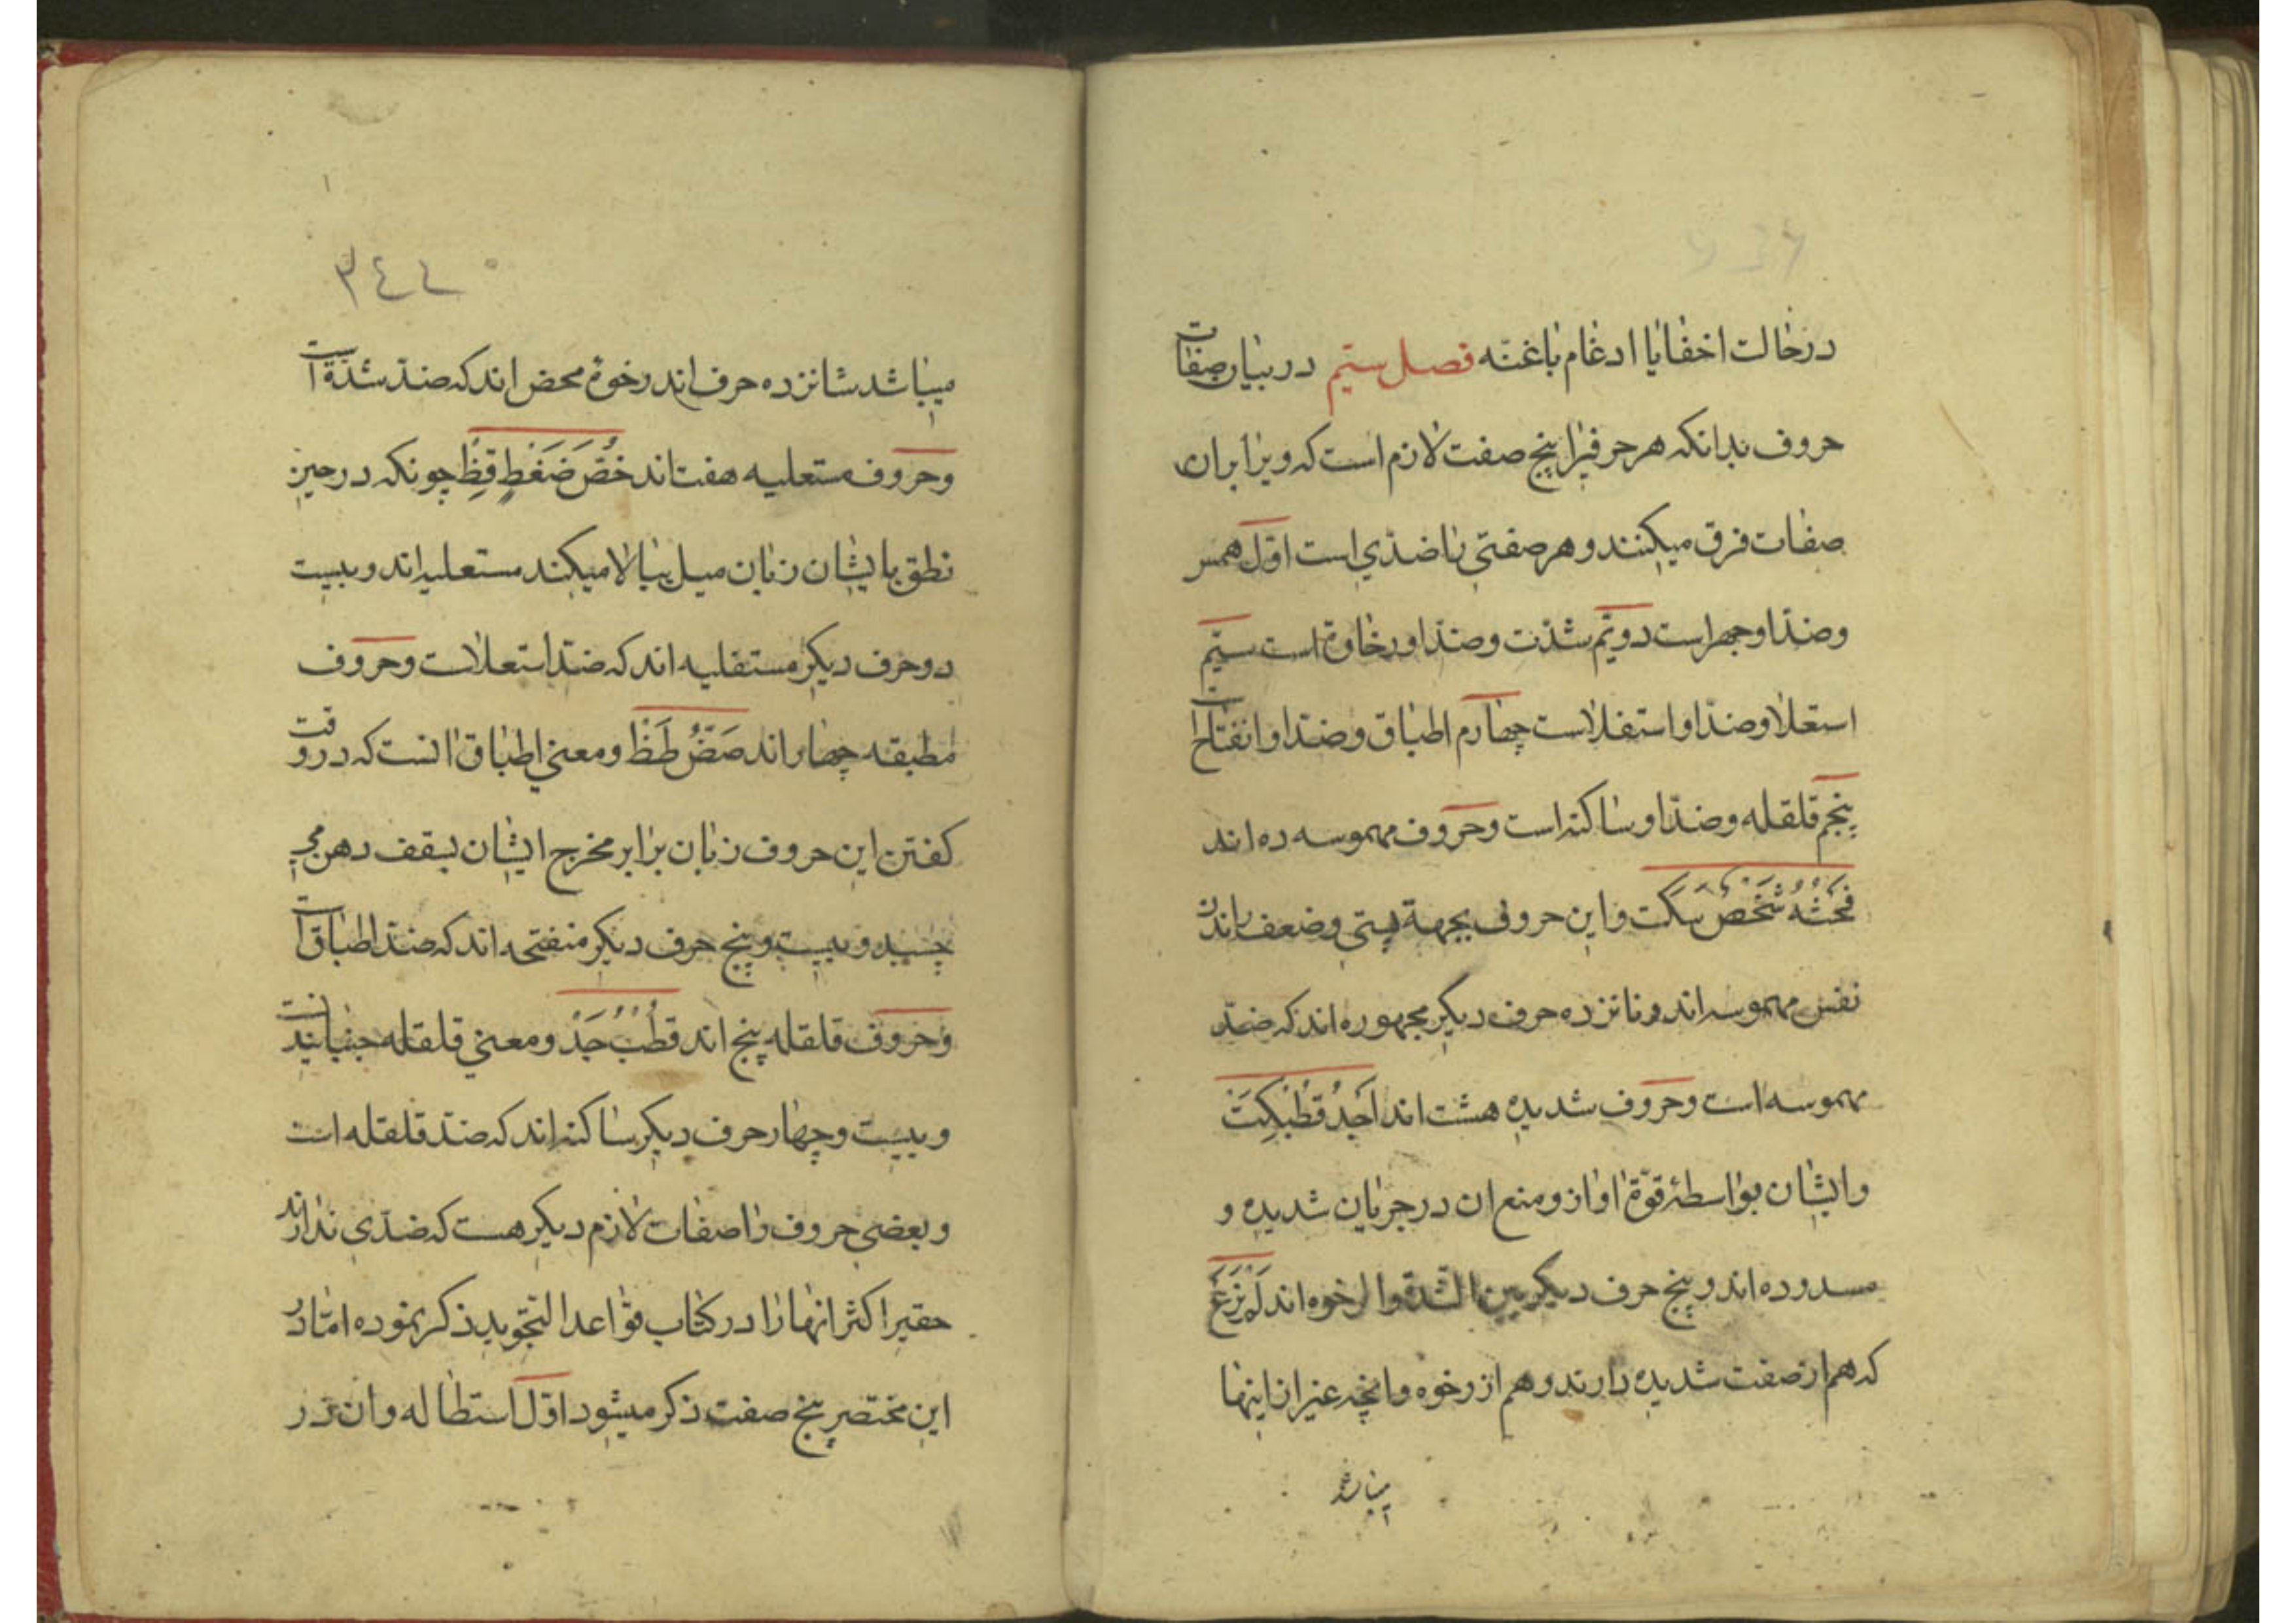 درحالت اخفا یا ادغام باغنّه فصل سیّم در بیان صفات
حروف بدانکه هر حرفیرا پنج صفت لازم است که ویرا بران
صفات فرق میکنند و هر صفتی را ضدّی است اوّل همس
وضدّ او جهر است دویّم شدّت وضدّ او رخاوة است سیّم
استعلا وضدّ او استفلاست چهارم اطباق وضدّ او انفتاح است
پنجم قلقله وضدّ او ساکنه است وحروف مهموسه ده اند
فَحَثَّهُ شَخْصٌ سَکَت و این حروف بجهة پستی وضعف راندن
نفس مهموسه اند و نانزده حرف دیکر مجهوره اند که ضدّ
مهموسه است وحروف شدیده هشت اند اَجَدُ قُطْبِکِتَ
وایشان بواسطۀ قوّة اواز و منع ان در جریان شدیده و
مسدوده اند و پنج حرف دیکر بین الشدة والرخوه اند لَمْ نَرَعْ
که هم از صفت شدیده دارند و هم از رخوه وانچه غیر از اینها
میباشد
٣٤٤
میباشد شانزده حرف اند رخوۀ محض اند که ضدّ شدّة است
وحروف مستعلیه هفت اند خُصَّ ضَغْطٍ قِظْ چونکه در حین
نطق بایشان زبان میل ببالا میکند مستعلیه اند و بیست
دو حرف دیکر مستفلیه اند که ضدّ استعلات وحروف
مطبقه چهار اند صَضُ طَظْ ومعنی اطباق انست که در وقت
کفتن این حروف زبان برابر مخرج ایشان بسقف دهن می
چسپد و بیست و پنج حرف دیکر منفتحه اند که ضدّ اطباق است
وحروف قلقله پنج اند قُطُبُ جَدٍ ومعنی قلقله جنبانیدنست
و بیست و چهار حرف دیکر ساکنه اند که ضدّ قلقله است
و بعضی حروف را صفات لازم دیکر هست که ضدّی ندارند
حقیر اکثر انها را در کتاب قواعد التجوید ذکر نموده امّا در
این مختصر پنج صفت ذکر میشود اوّل استطاله وان در